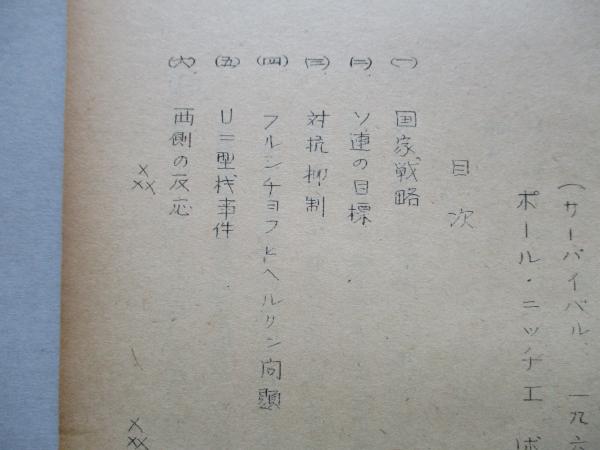 (サーバイバル 一九六
ポール・ニッチエ
目次
(一) 国家戦略
(二) ソ連の目標
(三) 対抗抑制
(四) フルシチョフとベルリン問題
(五) U=型機事件
(六) 西側の反応
×
××
×
××